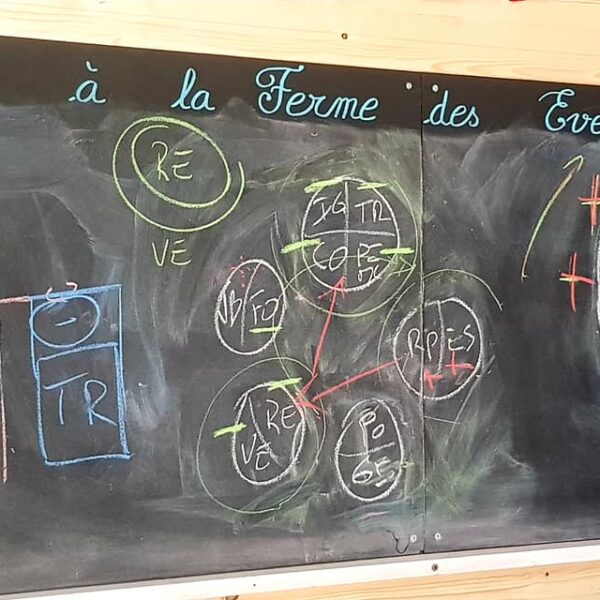 à la Ferme des
RE
VE
IG TR
CO PE
FO
RP ES
TR
RE
VE
PO
GE